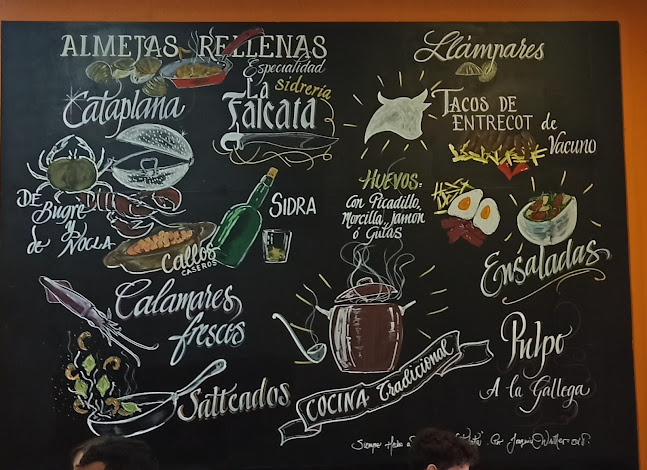 ALMEJAS RELLENAS
Especialidad
Sidrería
La
Falcata
Llámpares
Cataplana
DE
Bugre
y
de Nocla
TACOS DE
ENTRECOT de
Vacuno
HUEVOS:
con Picadillo,
Morcilla, Jamón
ó Gulas
SIDRA
Callos
CASEROS
Ensaladas
Calamares
frescos
Salteados
COCINA Tradicional
Pulpo
A la Gallega
Siempre Hecho a
Por Joaquín